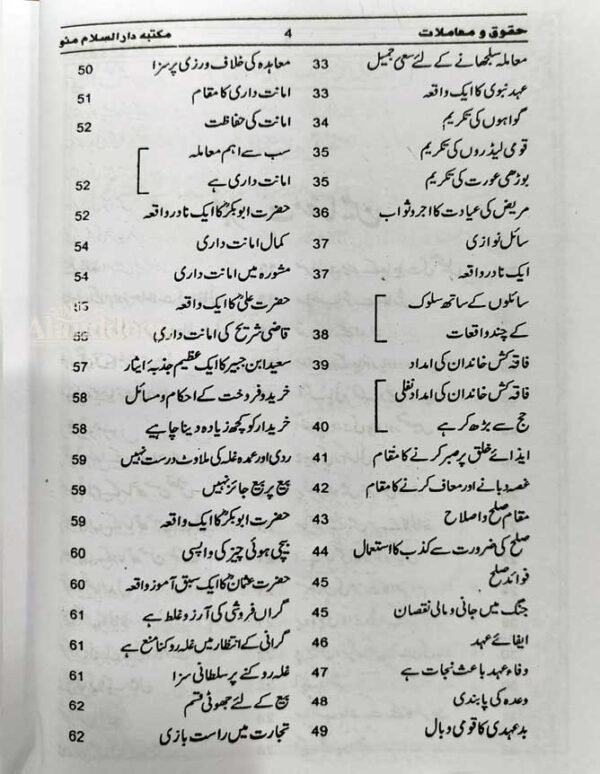 حقوق و معاملات 4 مکتبہ دارالسلام مئو
معاملہ سلجھانے کے لئے سعی جمیل 33
عہد نبوی کا ایک واقعہ 33
گواہوں کی تکریم 34
قومی لیڈروں کی تکریم 35
بوڑھی عورت کی تکریم 35
مریض کی عیادت کا اجر و ثواب 36
سائل نوازی 37
ایک نادر واقعہ 37
سائلوں کے ساتھ سلوک
کے چند واقعات 38
فاقہ کش خاندان کی امداد 39
فاقہ کش خاندان کی امداد نفلی
حج سے بڑھ کر ہے 40
ایذائے خلق پر صبر کرنے کا مقام 41
غصہ دبانے اور معاف کرنے کا مقام 42
مقام صلح و اصلاح 43
صلح کی ضرورت سے کذب کا استعمال 44
فوائد صلح 45
جنگ میں جانی و مالی نقصان 45
ایفائے عہد 46
وفاء عہد باعث نجات ہے 47
وعدہ کی پابندی 48
بدعہدی کا قومی وبال 49
معاہدہ کی خلاف ورزی پر سزا 50
امانت داری کا مقام 51
امانت کی حفاظت 52
سب سے اہم معاملہ
امانت داری ہے 52
حضرت ابوبکرؓ کا ایک نادر واقعہ 52
کمال امانت داری 54
مشورہ میں امانت داری 54
حضرت علیؓ کا ایک واقعہ 55
قاضی شریح کی امانت داری
سعید ابن جبیر کا ایک عظیم جذبۂ ایثار 57
خرید و فروخت کے احکام و مسائل 58
خریدار کو کچھ زیادہ دینا چاہیے 58
ردی اور عمدہ غلہ کی ملاوٹ درست نہیں 59
بیع پر بیع جائز نہیں 59
حضرت ابوبکرؓ کا ایک واقعہ 59
بیچی ہوئی چیز کی واپسی 60
حضرت عثمانؓ کا ایک سبق آموز واقعہ 60
گراں فروشی کی آرزو غلط ہے 61
گرانی کے انتظار میں غلہ روکنا منع ہے 61
غلہ روکنے پر سلطانی سزا 61
بیع کے لئے جھوٹی قسم 62
تجارت میں راست بازی 62